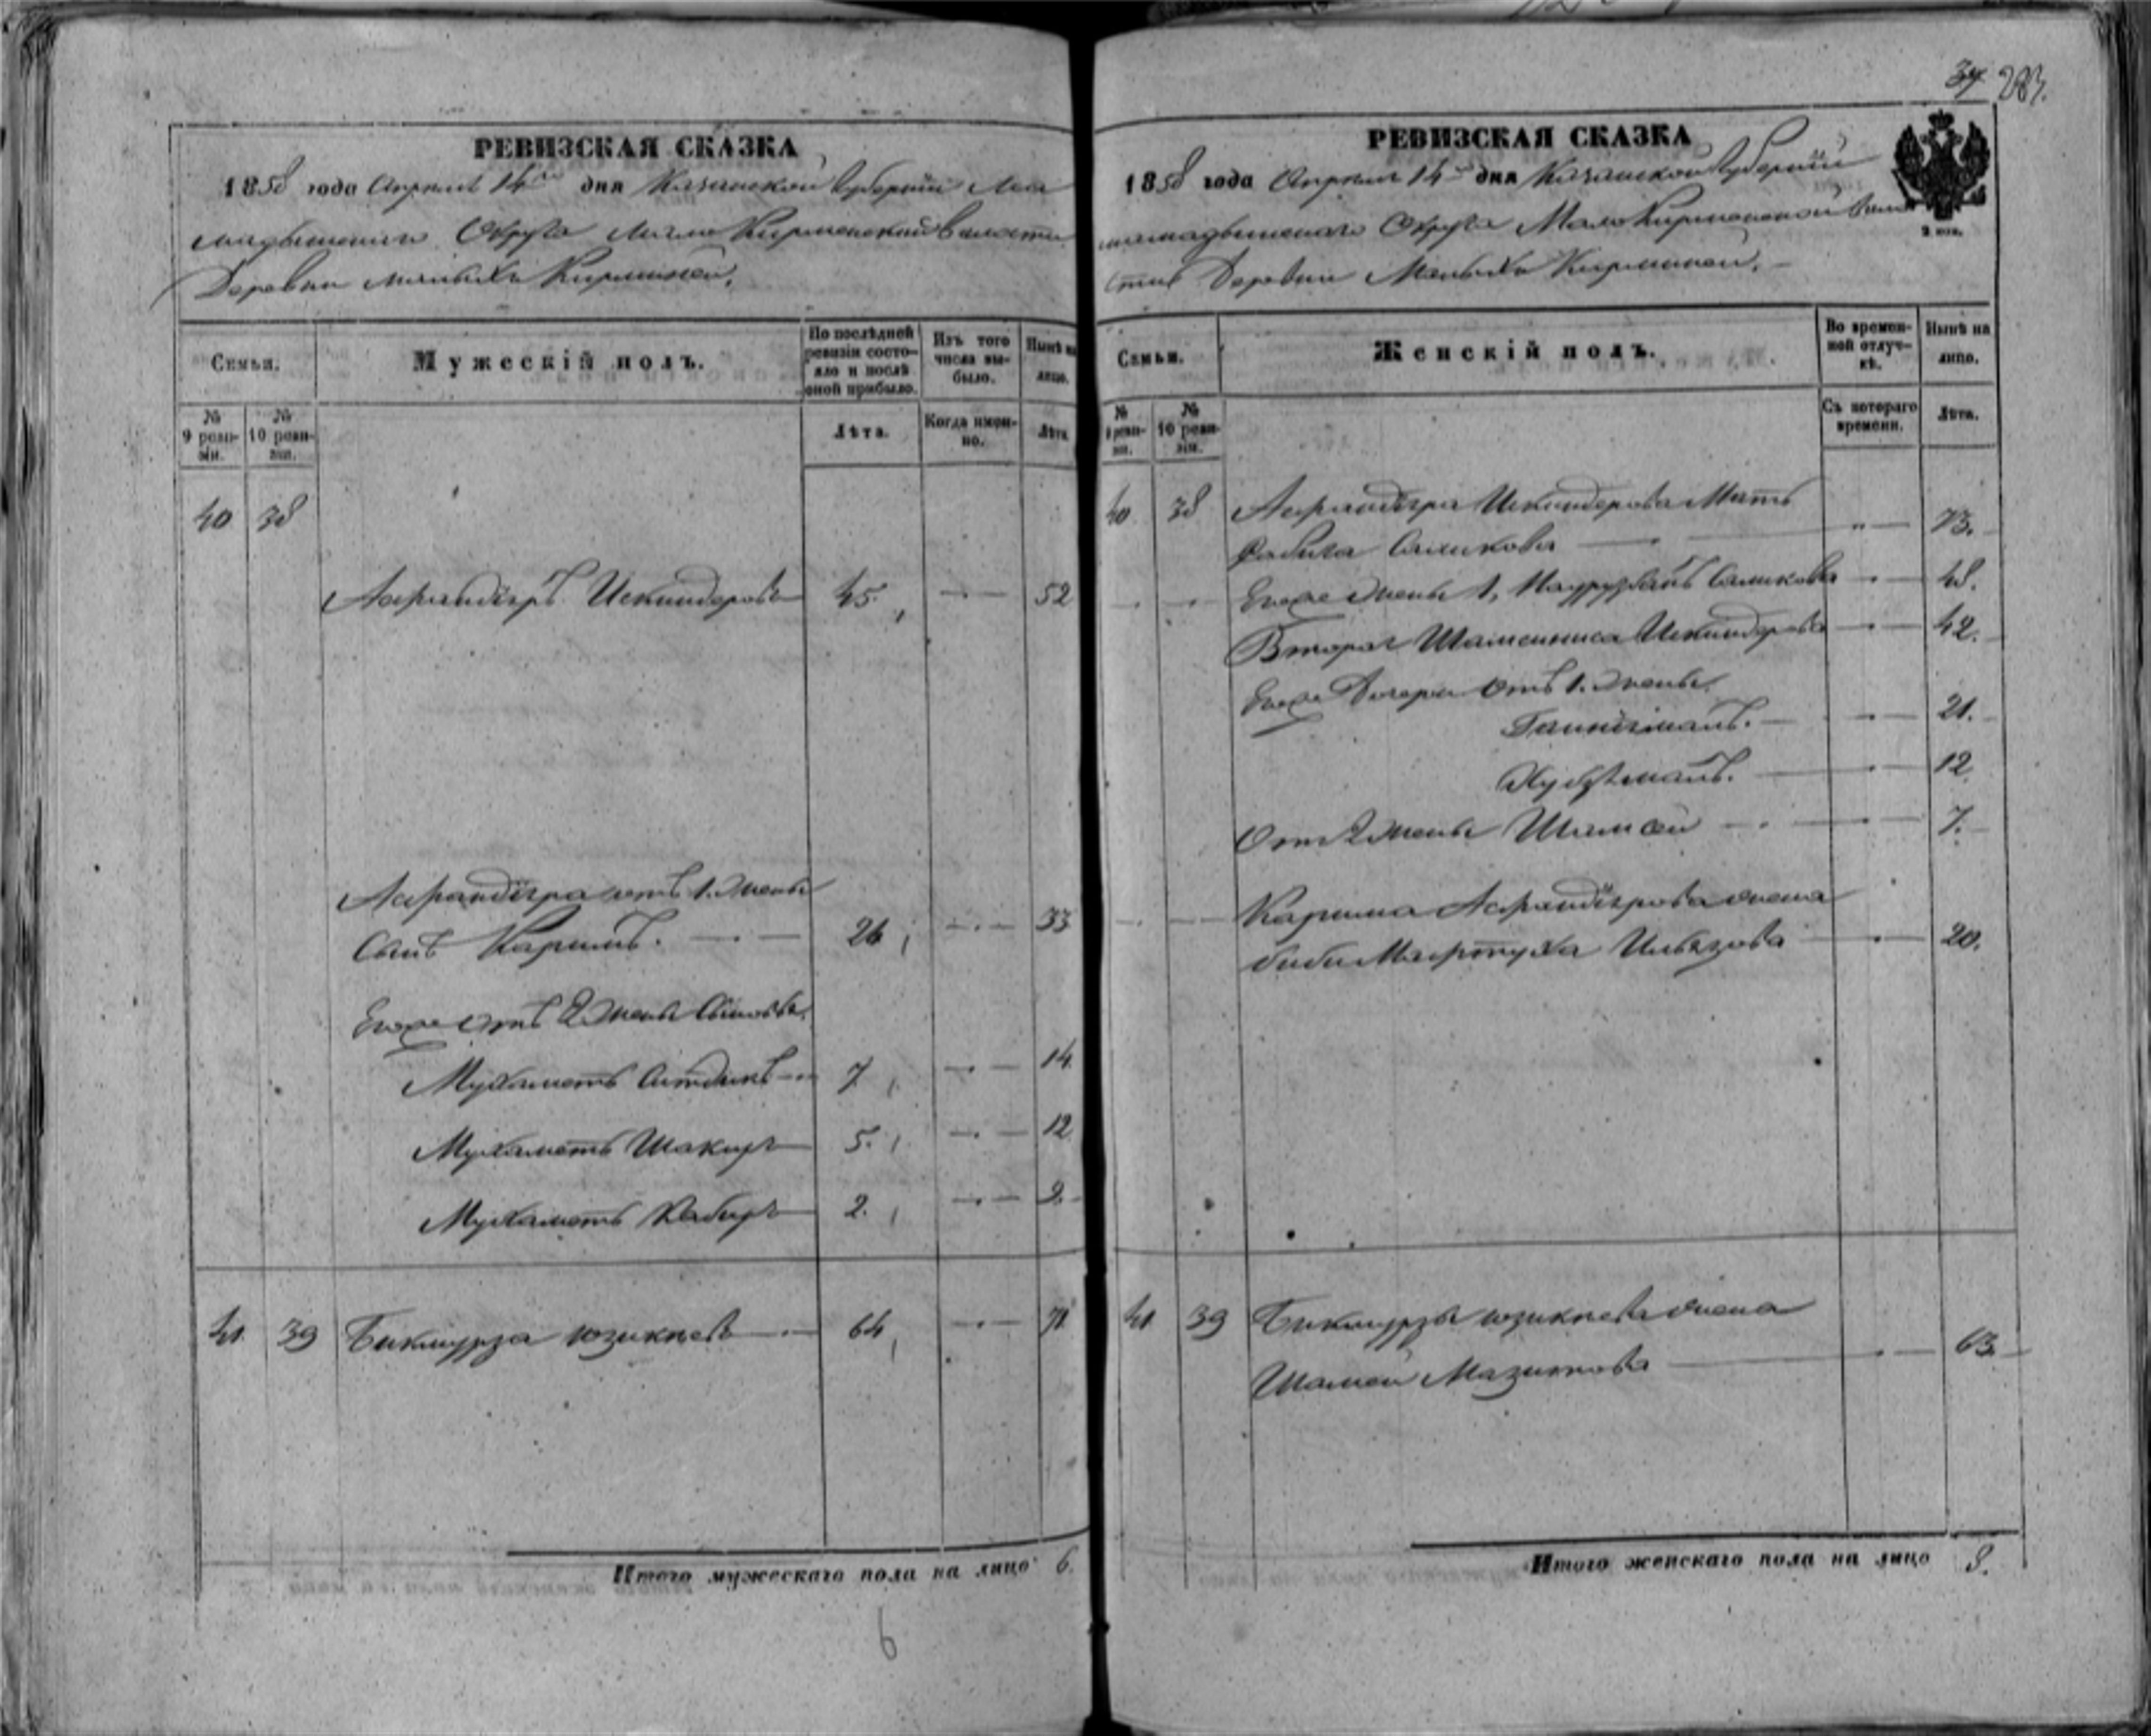 37. 283.
РЕВИЗСКАЯ СКАЗКА
1858 года Апреля 14го дня Казанской Губернии Ма
мадышскаго Округа Мало Кирменской Волости
Деревни Малыхъ Кирменей,
Семьи.
Мужескій полъ.
По послѣдней ревизіи состояло и послѣ оной прибыло.
Изъ того числа выбыло.
Нынѣ на лицо.
№ 9 ревизіи.
№ 10 ревизіи.
Лѣта.
Когда именно.
Лѣта
40 38
Асфандіяръ Искиндеровъ 45. 52
Асфандіяра отъ 1. Жены
Сынъ Каримъ. 26 33
Егоже отъ 2 Жены Сыновья,
Мухаметъ Ситдикъ 7 14
Мухаметъ Шакиръ 5. 12
Мухаметъ Кабиръ 2. 9.
41. 39 Бикмурза Юзикѣевъ 64 71
Итого мужескаго пола на лицо 6.
6
РЕВИЗСКАЯ СКАЗКА
1858 года Апреля 14го дня Казанской Губерніи
мамадышскаго Округа Мало Кирменской Воло
сти Деревни Малыхъ Кирменей.
2 коп.
Семьи.
Женскій полъ.
Во временной отлучкѣ.
Нынѣ на лицо.
№ 9 ревизіи.
№ 10 ревизіи.
Съ котораго времени.
Лѣта.
40 38 Асфандіяра Искиндерова Мать
Рабига Салихова 73.
Егоже Жены 1, Салихова 48.
Вторая Искиндерова 42.
Егоже Дочери отъ 1. Жены
21.
12
Отъ 2 Жены Шамси 7.
Карима Асфандіярова жена
биби 20.
41 39 Бикмурзы Юзикѣева жена
Шамси Мазитова 63.
Итого женскаго пола на лицо 8.